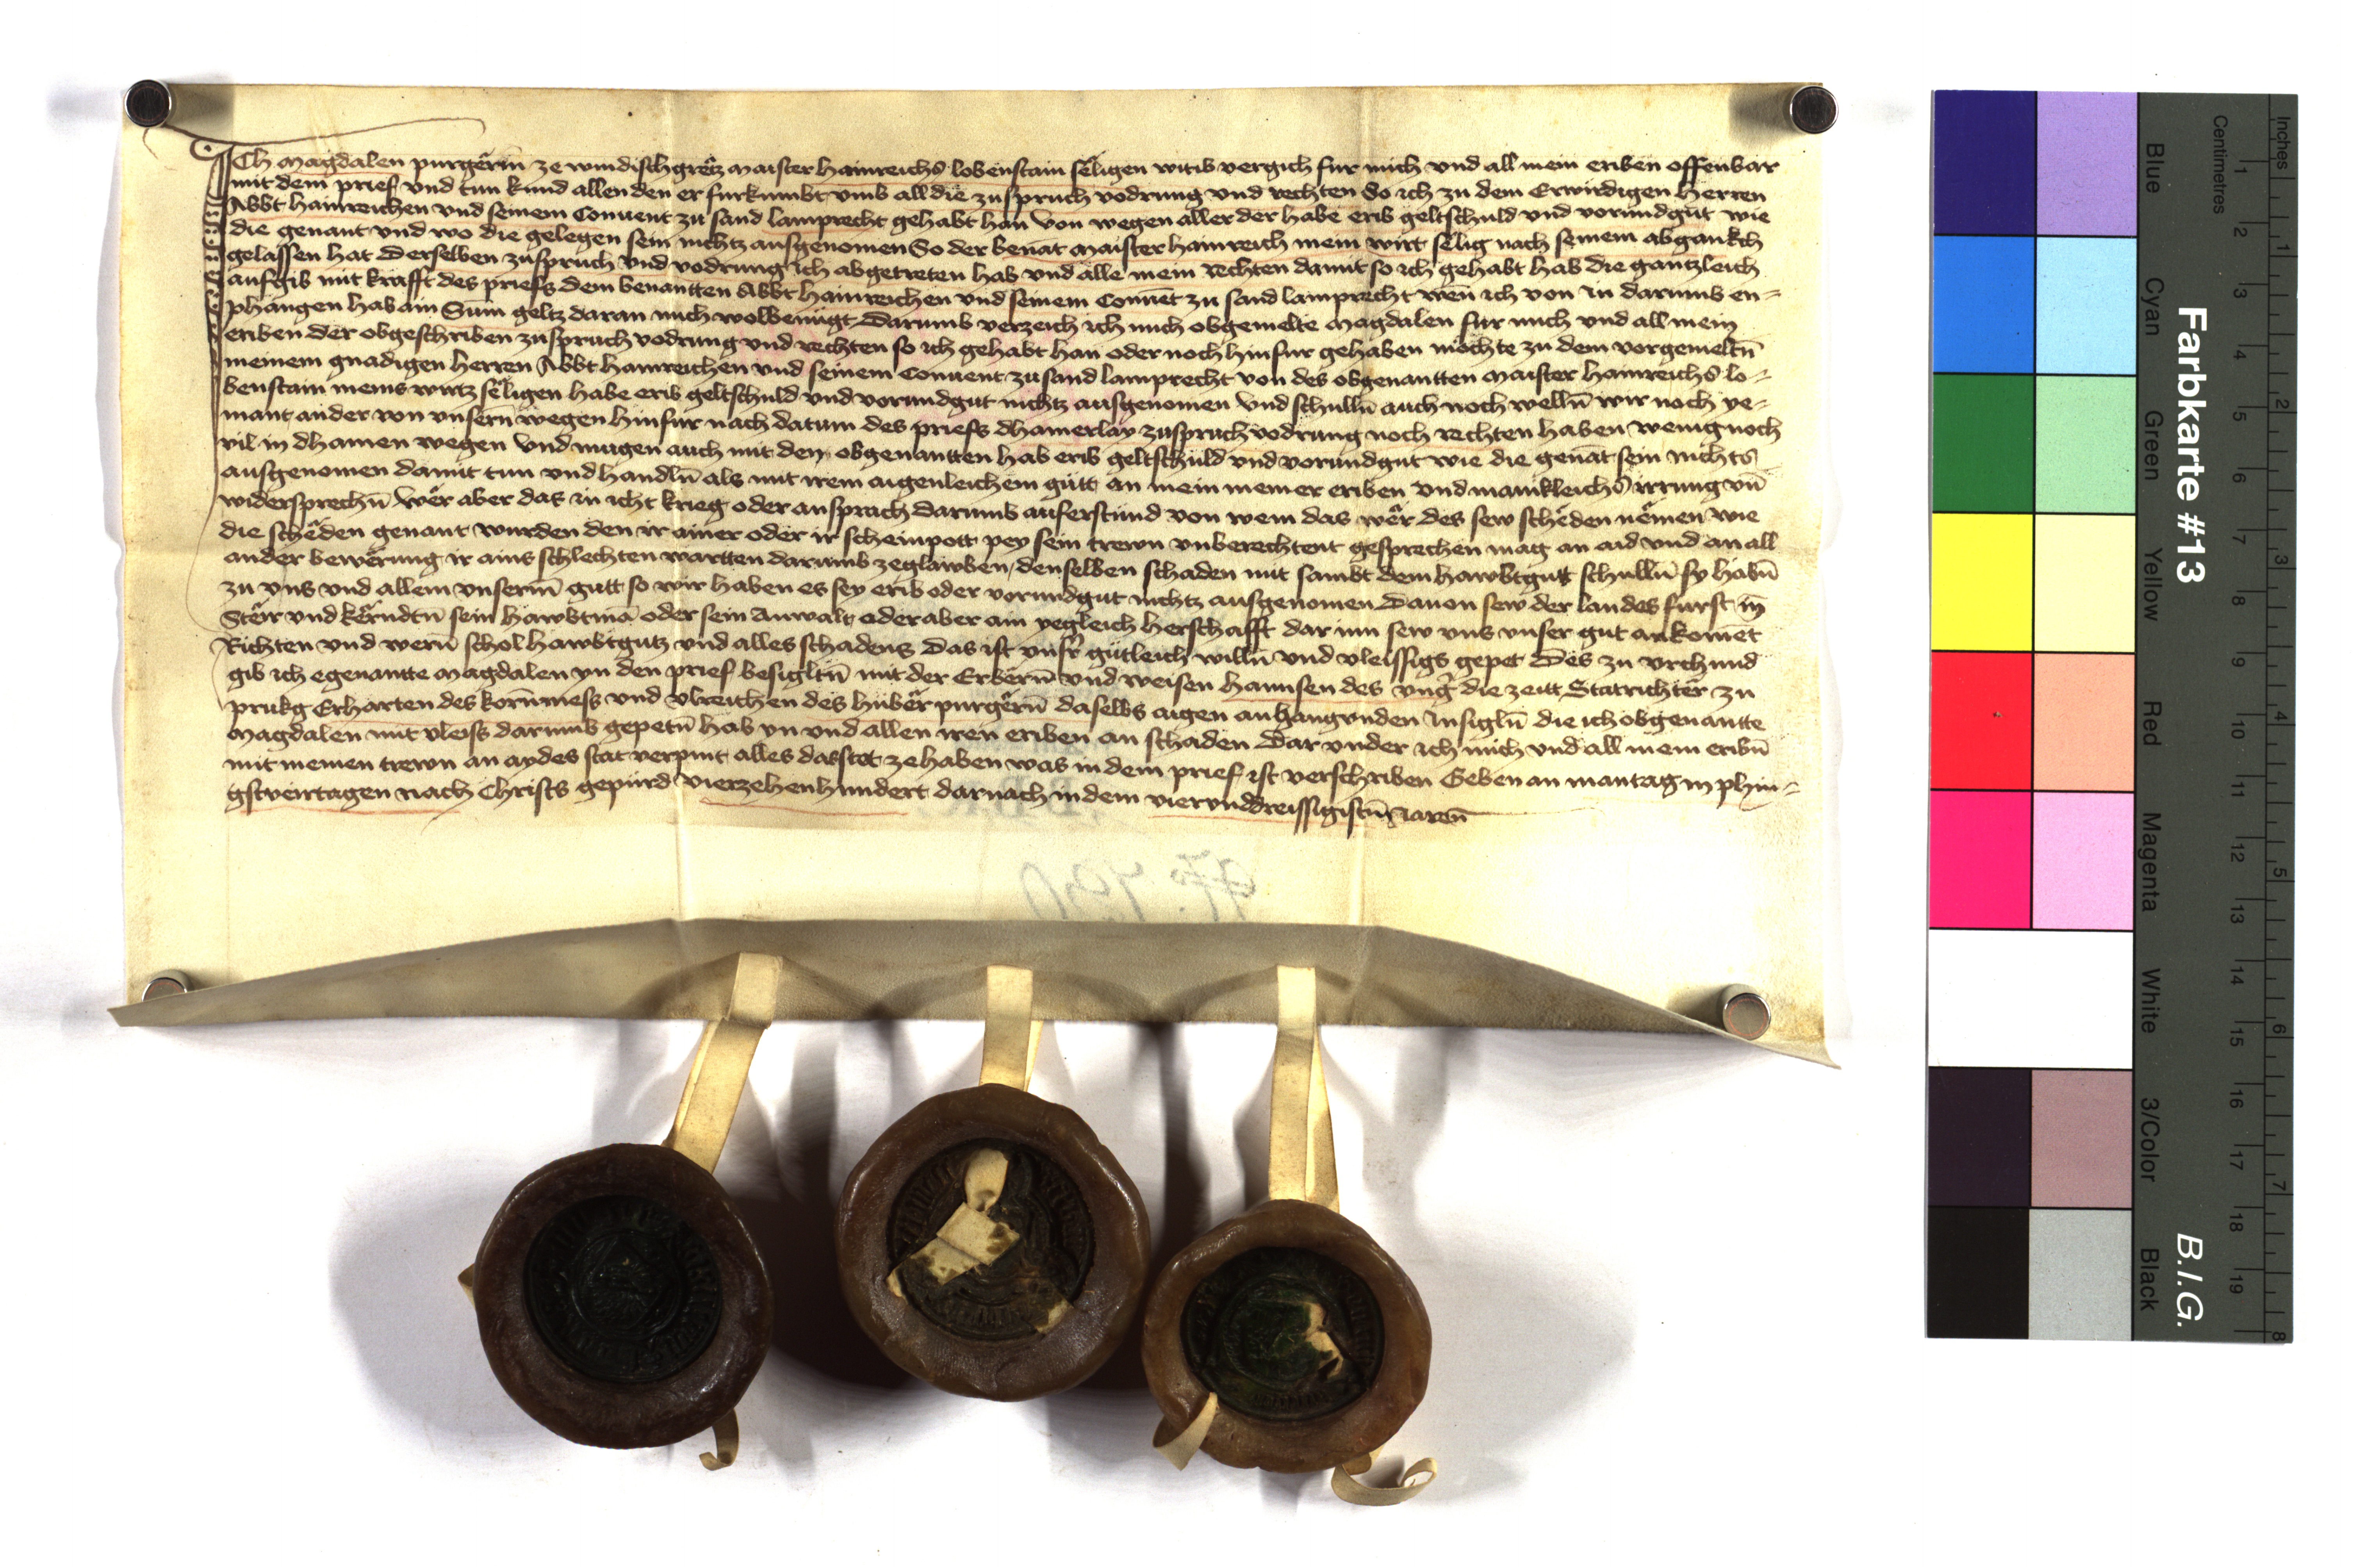 Ich Magdalen purgērin ze windischgrētz maister hainreichs lobenstain sēligen witib vergich fur mich vnd all mein eriben offenbar
mit dem prief vnd tun kund allen den er furkumbt vmb all die zuspruch vodrung vnd rechten So ich zu dem Erwirdigen Herren
Abbt hainreichen vnd seinem Conuent zu sand lamprecht gehabt han von wegen aller der habe erib geltschuld vnd vorundgut wie
die genant vnd wo die gelegen sein nichtz ausgenomen So der benāt maister hainreich mein wirt sēlig nach seinem abgankch
gelassen hat Derselben zuspruch vnd vodrung ich abgetreten hab vnd alle mein rechten damit so ich gehabt hab die gantzleich
aufgib mit krafft des priefs dem benantten Abbt hainreichen vnd seinem Conuēt zu sand lamprecht wēn ich von in darumb en-
phangen hab ain Sum geltz daran mich wolbenügt Darumb verzeich ich mich obgemelte Magdalen fur mich vnd all mein
eriben der obgeschriben zuspruch vodrung vnd rechten so ich gehabt han oder noch hinfur gehaben möchte zu dem vorgemeltn̄
meinem gnadigen herren Abbt hainreichen vnd seinem Conuent zu sand lamprecht von des obgenantten maister hainreichs lo-
benstain meins wirtz sēligen habe erib geltschuld vnd vorundgut nichtz ausgenomen vnd schulln̄ auch noch welln̄ wir noch ye-
mant ander von vnsern wegen hinfur nach datum des priefs dhainerlay zuspruch vodrung noch rechten haben wenig noch
vil in dhainen wegen vnd mugen auch mit den obgenantten hab erib geltschuld vnd vorundgut wie die genāt sein nichts
ausgenomen damit tun vnd handln̄ als mit irem aigenleichem gütt an mein meiner eriben vnd mänikleichs irrung vn̄
widersprechn̄ Wēr aber das in icht krieg oder ansprach darumb auferstünd von wem das wēr des sew schēden nēmen wie
die schēden genant wurden den ir ainer oder ir scheinpott pey sein trewn vnberechtent gesprechen mag an aid vnd an all
ander bewērung ir ains schlechten wartten darumb zeglawben denselben schaden mit sambt dem hawbtgutt schulln̄ sy habn̄
zu vns vnd allem vnserm gutt so wir haben es sey erib oder vorundgut nichtz ausgenomen Dauon sew der landes furst in̄
Stēr vnd kērndtn̄ sein hawbtmā oder sein Anwalt oder aber ain yegleich herschafft dar inn sew vns vnser gut ankomēt
Richten vnd wern̄ schol hawbtgutz vnd alles schadens Das ist vnsr̄ gütleich willn̄ vnd vleissigs gepet Des zu vrchund
gib ich egenantte Magdalen yn den prief besigltn̄ mit der Erbern̄ vnd weisen Hannsen des vnḡ die zeitt Statrichtēr zu
prukg Erharten des korn̄mess vnd vlreichen des hubēr purgērn̄ daselbs aigen anhangunden Insigln̄ die ich obgenantte
Magdalen mit vleiss darumb gepetn̄ hab yn vnd allen iren eriben an schaden Dar vnder ich mich vnd all mein eribn̄
mit meinen trewn an aydes stat verpint alles das stet ze haben was in dem prief ist verschriben Geben an mantag in phin-
gstveirtagen nach Christs gepurd vierzehenhundert darnach in dem viervnddreissigistn̄ Iaren̄
Farbkarte #13
B.I.G.
Centimetres
Inches
Blue
Cyan
Green
Yellow
Red
Magenta
White
3/Color
Black
1 2 3 4 5 6 7 8 9 10 11 12 13 14 15 16 17 18 19
1 2 3 4 5 6 7 8